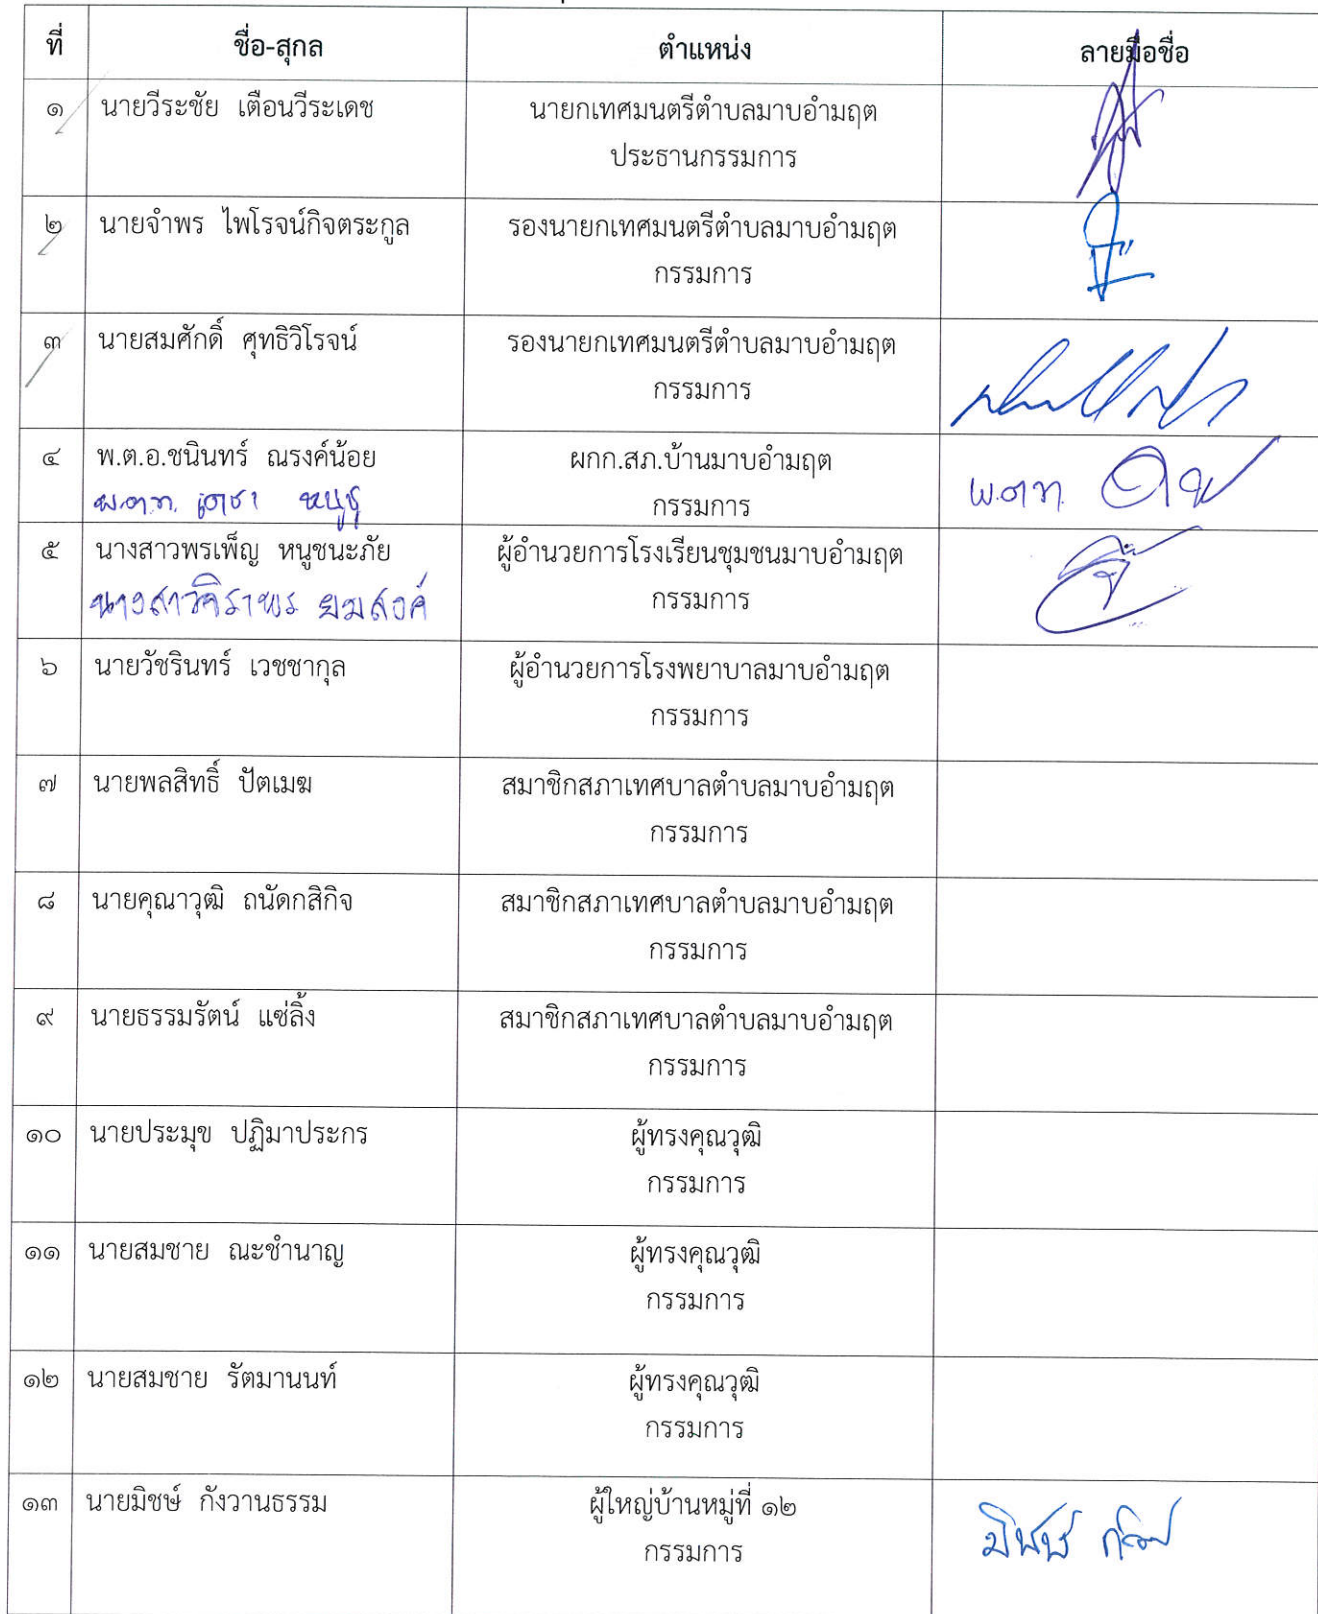 ที่ ชื่อ-สุกล ตำแหน่ง ลายมือชื่อ
๑ นายวีระชัย เตือนวีระเดช นายกเทศมนตรีตำบลมาบอำมฤต
ประธานกรรมการ
๒ นายจำพร ไพโรจน์กิจตระกูล รองนายกเทศมนตรีตำบลมาบอำมฤต
กรรมการ
๓ นายสมศักดิ์ ศุทธิวิโรจน์ รองนายกเทศมนตรีตำบลมาบอำมฤต
กรรมการ
๔ พ.ต.อ.ชนินทร์ ณรงค์น้อย ผกก.สภ.บ้านมาบอำมฤต
พ.ต.ท. เดชา หนูชู กรรมการ พ.ต.ท.
๕ นางสาวพรเพ็ญ หนูชนะภัย ผู้อำนวยการโรงเรียนชุมชนมาบอำมฤต
นางสาวจิราพร ยมสงค์ กรรมการ
๖ นายวัชรินทร์ เวชชากุล ผู้อำนวยการโรงพยาบาลมาบอำมฤต
กรรมการ
๗ นายพลสิทธิ์ ปัตเมฆ สมาชิกสภาเทศบาลตำบลมาบอำมฤต
กรรมการ
๘ นายคุณาวุฒิ ถนัดกสิกิจ สมาชิกสภาเทศบาลตำบลมาบอำมฤต
กรรมการ
๙ นายธรรมรัตน์ แซ่ลิ้ง สมาชิกสภาเทศบาลตำบลมาบอำมฤต
กรรมการ
๑๐ นายประมุข ปฏิมาประกร ผู้ทรงคุณวุฒิ
กรรมการ
๑๑ นายสมชาย ณะชำนาญ ผู้ทรงคุณวุฒิ
กรรมการ
๑๒ นายสมชาย รัตมานนท์ ผู้ทรงคุณวุฒิ
กรรมการ
๑๓ นายมิชษ์ กังวานธรรม ผู้ใหญ่บ้านหมู่ที่ ๑๒
กรรมการ มิชษ์